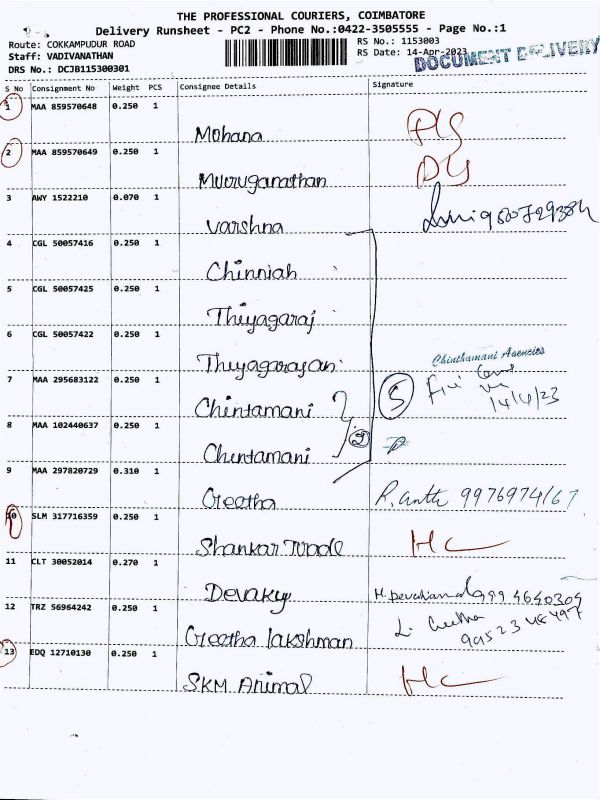 THE PROFESSIONAL COURIERS, COIMBATORE
Delivery Runsheet - PC2 - Phone No.:0422-3505555 - Page No.:1
Route: COKKAMPUDUR ROAD
Staff: VADIVANATHAN
DRS No.: DCJB115300301
RS No.: 1153003
RS Date: 14-Apr-2023
DOCUMENT DELIVERY
S No Consignment No Weight PCS Consignee Details Signature
1 MAA 859570648 0.250 1
Mohana
2 MAA 859570649 0.250 1
Muruganathan
3 AWY 1522210 0.070 1
Varshna
4 CGL 50057416 0.250 1
Chinniah
5 CGL 50057425 0.250 1
Thiyagaraj
6 CGL 50057422 0.250 1
Thiyagarajan
Chinthamani Agencies
7 MAA 295683122 0.250 1
Chintamani 5
14/4/23
8 MAA 102440637 0.250 1
Chintamani 2
9 MAA 297820729 0.310 1
Geetha 9976974167
10 SLM 317716359 0.250 1
Shankar HC
11 CLT 30052014 0.270 1
Devaky 9994640309
12 TRZ 56964242 0.250 1
Geetha lakshman L. Geetha
13 EDQ 12710130 0.250 1
SKM Animal HC